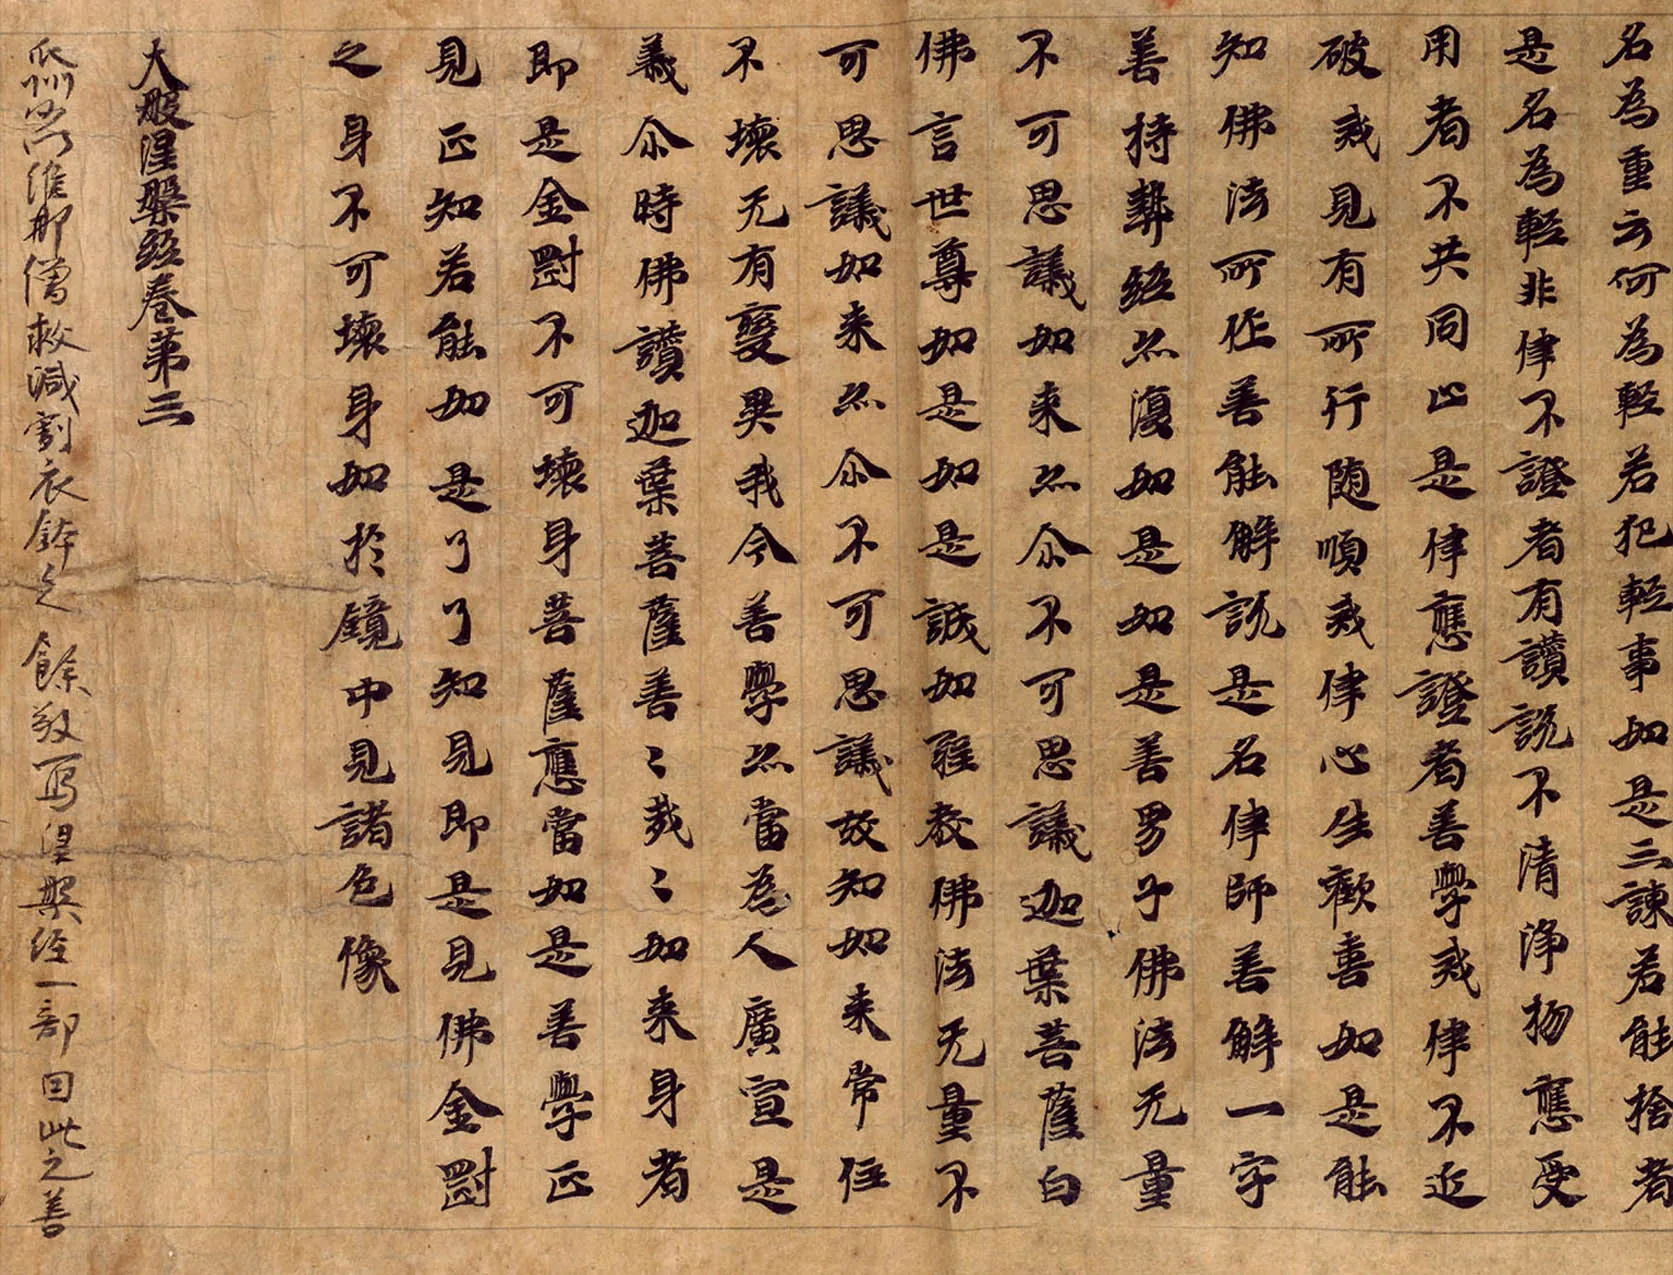 名為重云何為輕若犯輕事如是三諫若能捨者
是名為輕非律不證者有讚說不清淨物應受
用者不共同止是律應證者善學戒律不近
破戒見有所行随順戒律心生歡喜如是能
知佛法所作善能解說是名律師善解一字
善持契經亦復如是如是善男子佛法无量
不可思議如来亦尒不可思議迦葉菩薩白
佛言世尊如是如是誠如聖教佛法无量不
可思議如来亦尒不可思議故知如来常住
不壞无有變異我今善學亦當為人廣宣是
義尒時佛讚迦葉菩薩善〻㦲〻如来身者
即是金剛不可壞身菩薩應當如是善學正
見正知若能如是了了知見即是見佛金剛
之身不可壞身如於鏡中見諸色像
大般涅槃經卷第三
瓜州維那僧救減割衣鉢之餘敬寫涅槃經一部因此之善